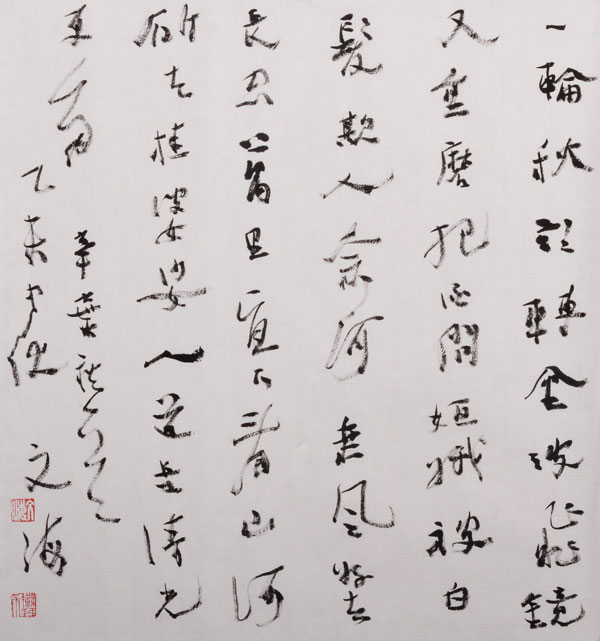 一輪秋影轉金波飛鏡
又重磨把酒問姮娥被白
髮欺人奈何乘風好去
長空萬里直下看山河
斫去桂婆娑人道是清光
更多
辛棄疾詞
乙未文海